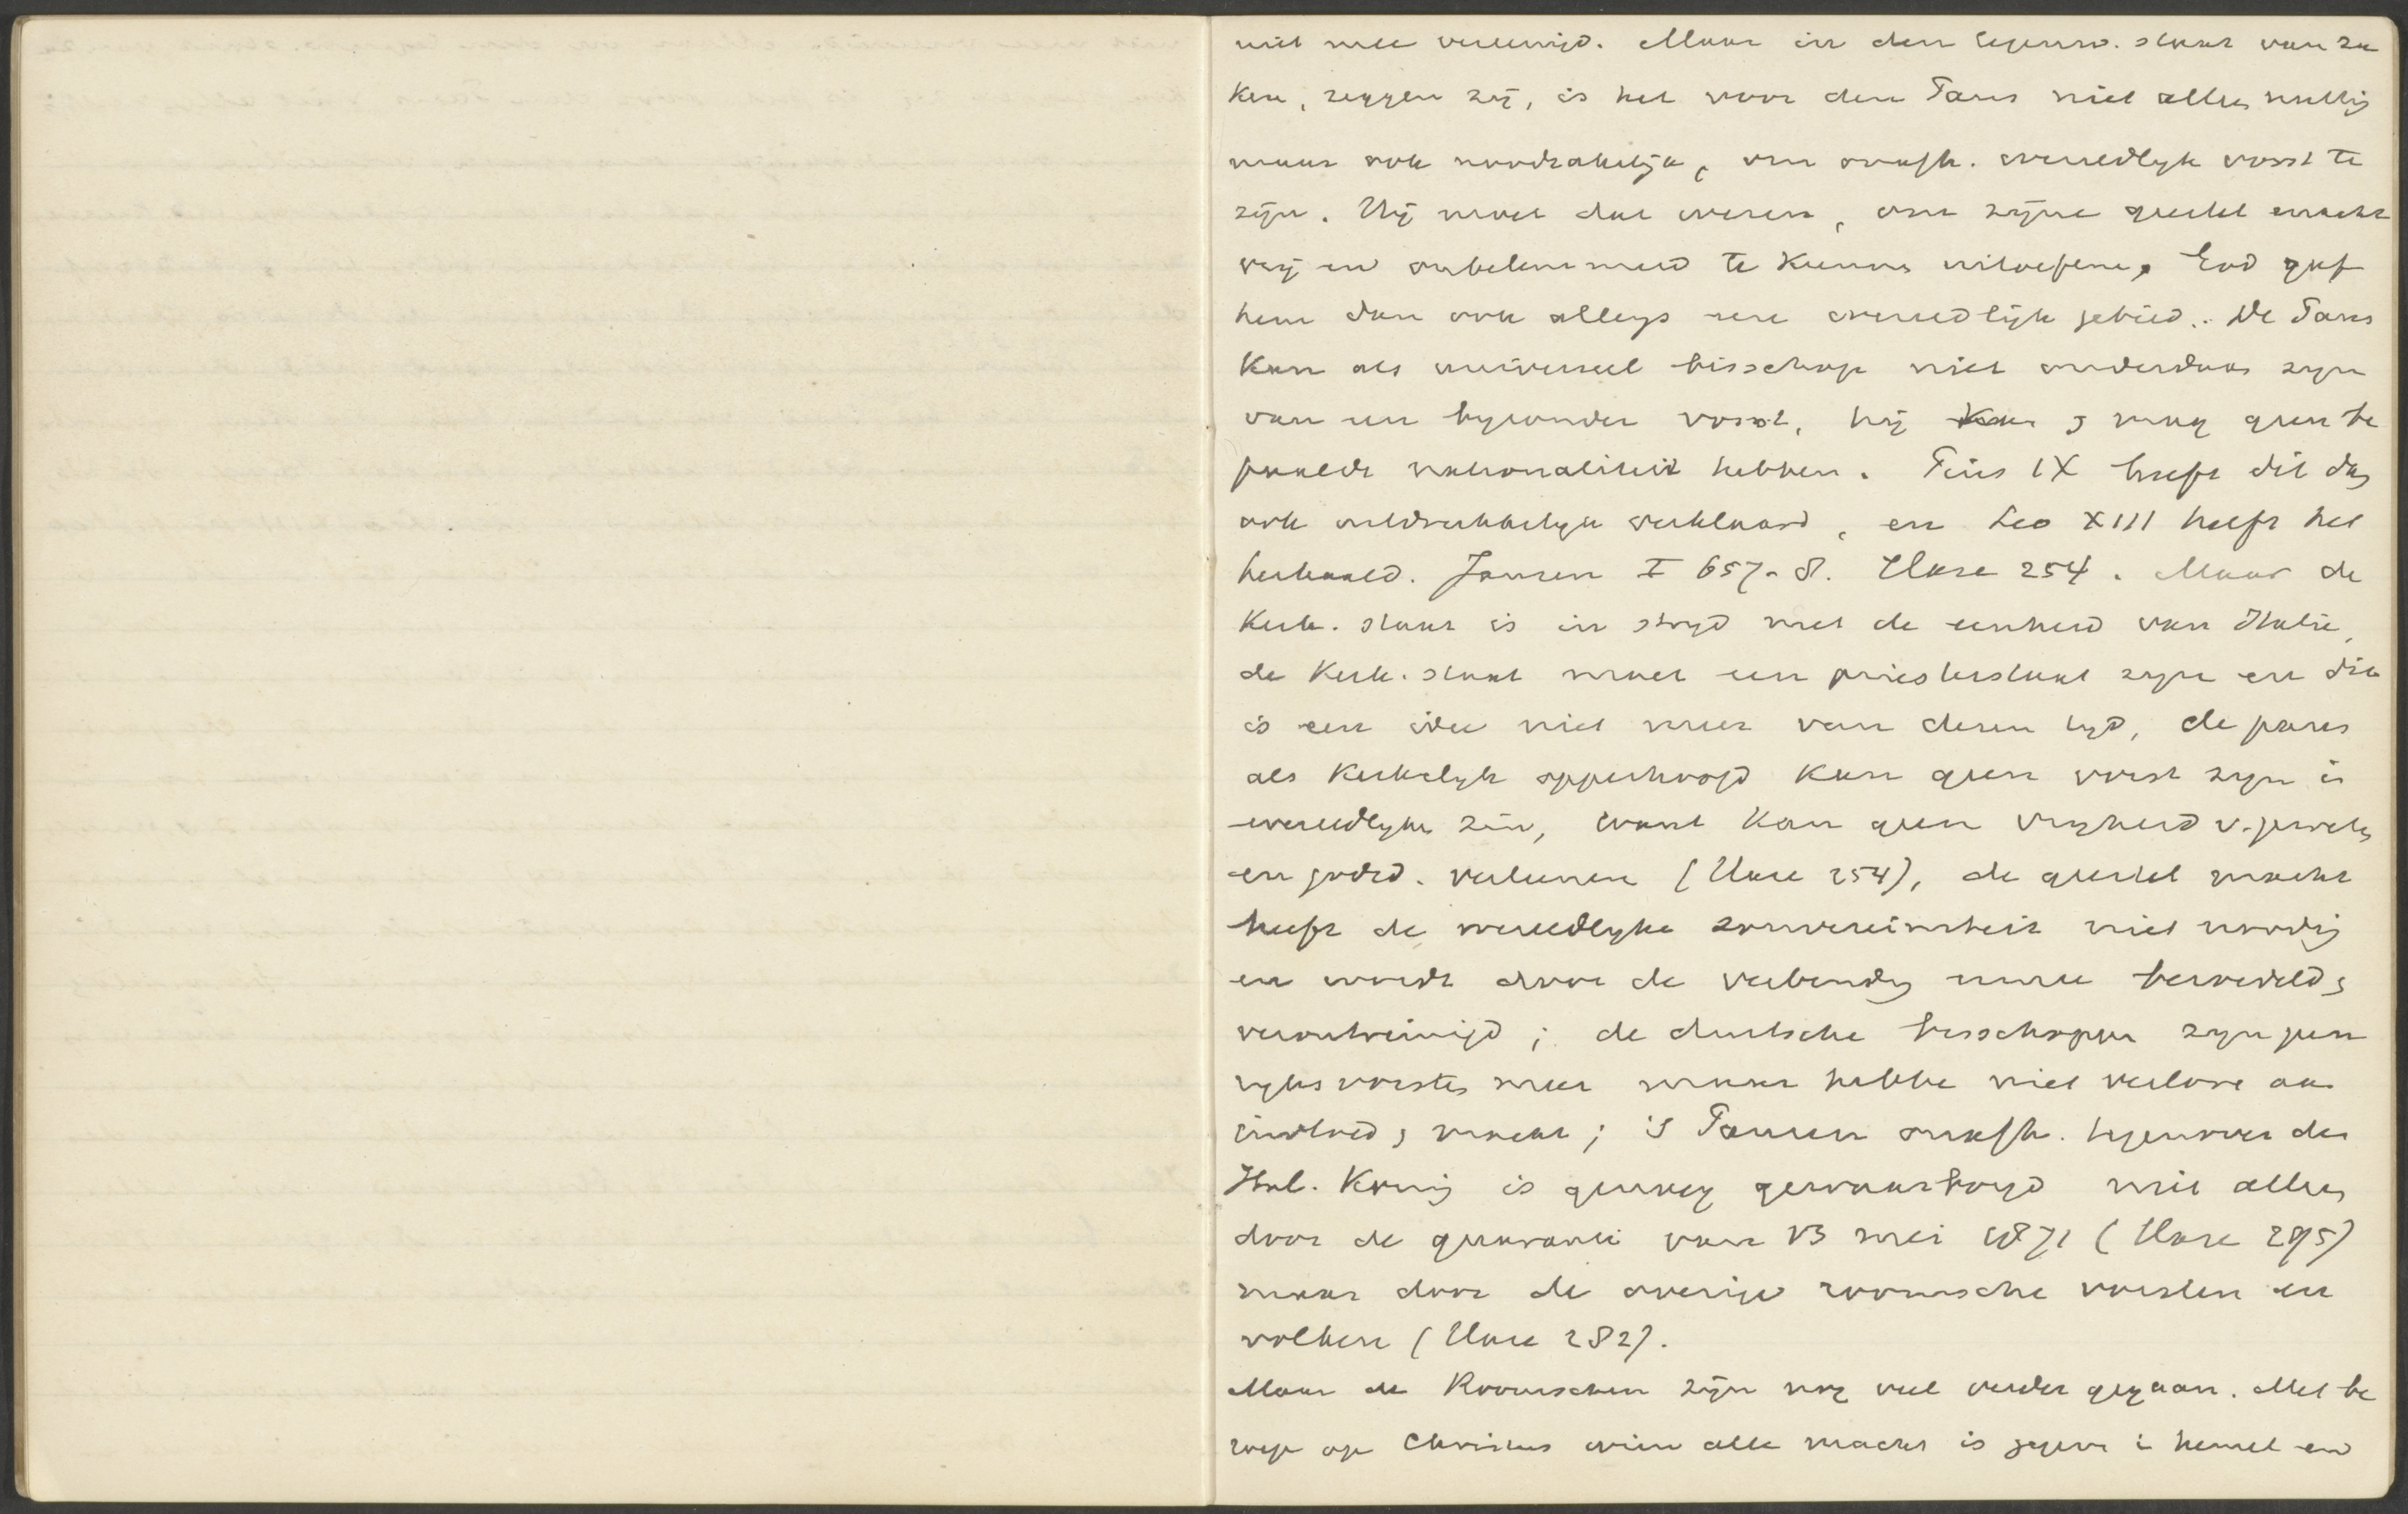 niet mee vereenigd. Maar in den tegenw. staat van za
ken, zeggen zij, is het voor den Paus niet alleen nuttig
maar ook noodzakelijk, om onafh. wereldlijk vorst te
zijn. Hij moet dat wezen, om zijne geestel macht
vrij en onbelemmerd te kunnen uitoefenen, God gaf
hem dan ook allengs een wereldlijk gebied. De Paus
kan als universeel bisschop niet onderdaan zijn
van een byzonder vorst, hij kan & mag geen be
paalde nationaliteit hebben. Pius IX heeft dit dan
ook uitdrukkelyk verklaard, en Leo XIII heeft het
herhaald. Jansen I 657-8. Hase 254. Maar de
Kerk. staat is in stryd met de eenheid van Italie,
de Kerk. staat moet een priesterstaat zyn en dit
is een idee niet meer van dezen tyd, de paus
als Kerkelyk opperhoofd kan geen vorst zyn in
wereldlyken zin, want kan geen vryheid v.
en godsd. verleenen (Hase 254), de geestel macht
heeft de wereldlyke souvereiniteit niet noodig
en wordt door de verbinding ermee bezoedeld &
verontreinigd; de duitsche bisschoppen zyn geen
ryksvorsten meer maar hebben niet verloren aan
invloed & macht; 's Pausen onafh. tegenover den
Ital. Koning is genoeg gewaarborgd niet alleen
door de garantie van 13 mei 1871 (Hase 295)
maar door de overige roomsche vorsten en
volken (Hase 282).
Maar de Roomschen zijn nog veel verder gegaan. Met be
roep op Christus wien alle macht is gegeven in hemel en